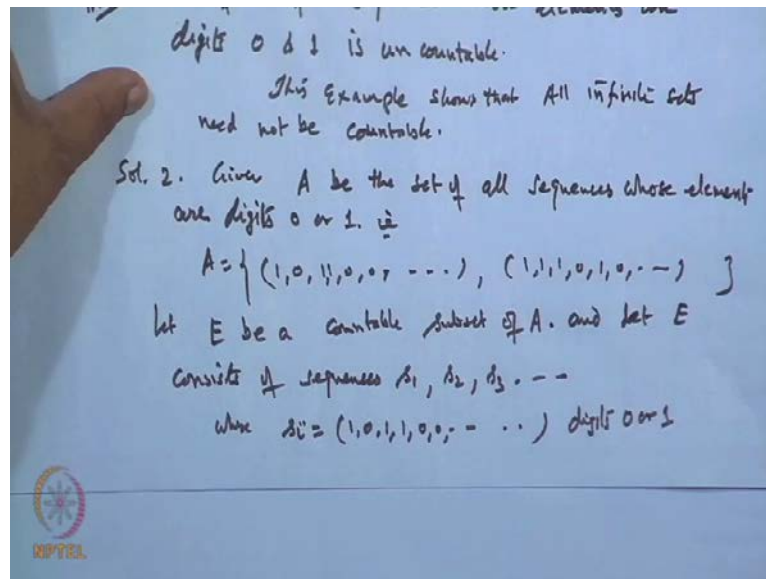 digits 0 & 1 is uncountable.
This Example shows that All infinite sets
need not be countable.
Sol. 2. Given A be the set of all sequences whose element
are digits 0 or 1. ie
A = { (1,0,1,1,0,0, - - - -), (1,1,1,0,1,0, - - -) }
let E be a countable subset of A. and let E
consists of sequences s1, s2, s3 . - -
where si = (1,0,1,1,0,0, - - ..) digits 0 or 1
NPTEL